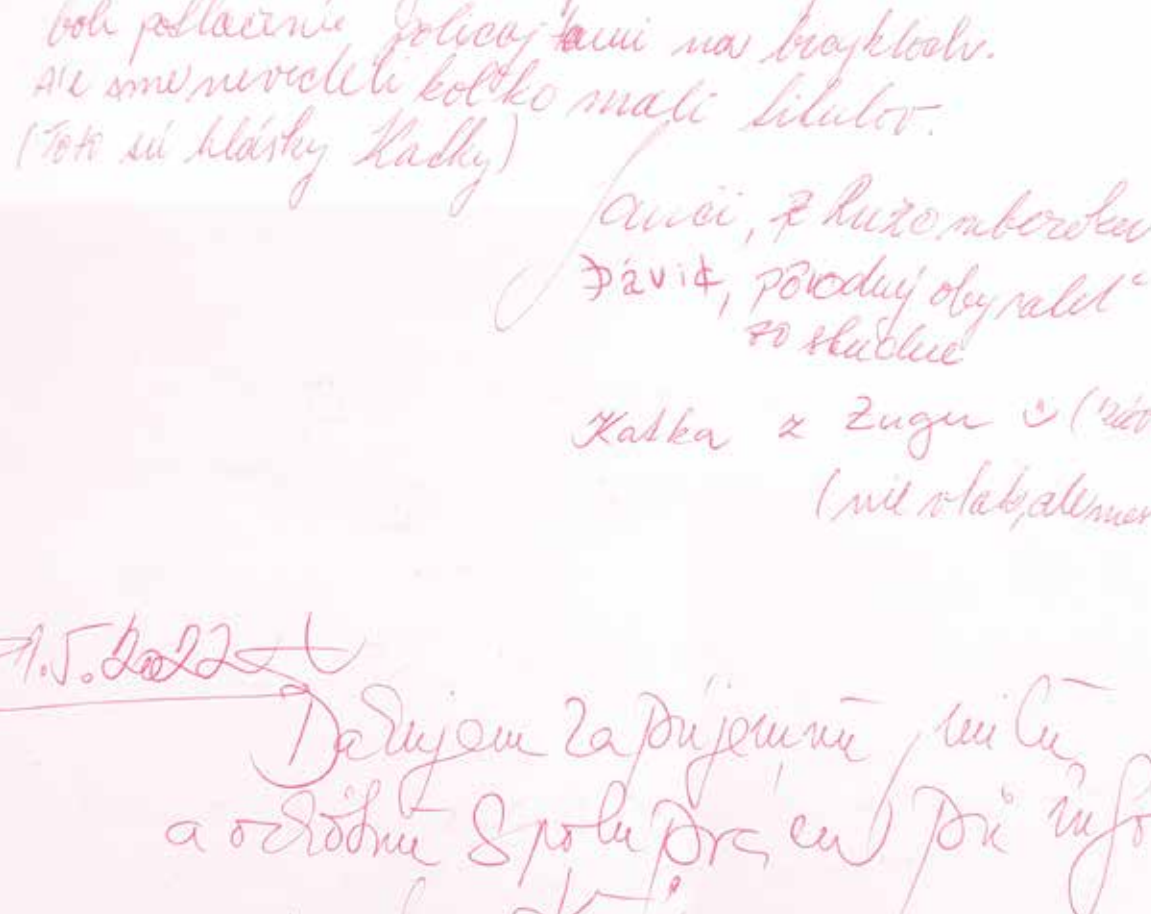 boli potlačenie policajtami na bicykloch.
Ale sme nevedeli koľko mali titulov.
(Toto sú hlásky Katky)
Janči, z Ružomberoku
Dávid, pôvodný obyvateľ
zo studne
Katka z Zugu
(nie vlak, ale
1.5.2022
Ďakujem za príjemnú, milú
a ochotnú spoluprácu pri info